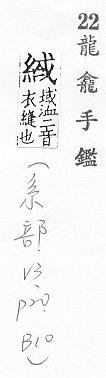 22龍龕手鑑
絨
域洫二音
衣縫也
(糸部.13.
p20.
B10)